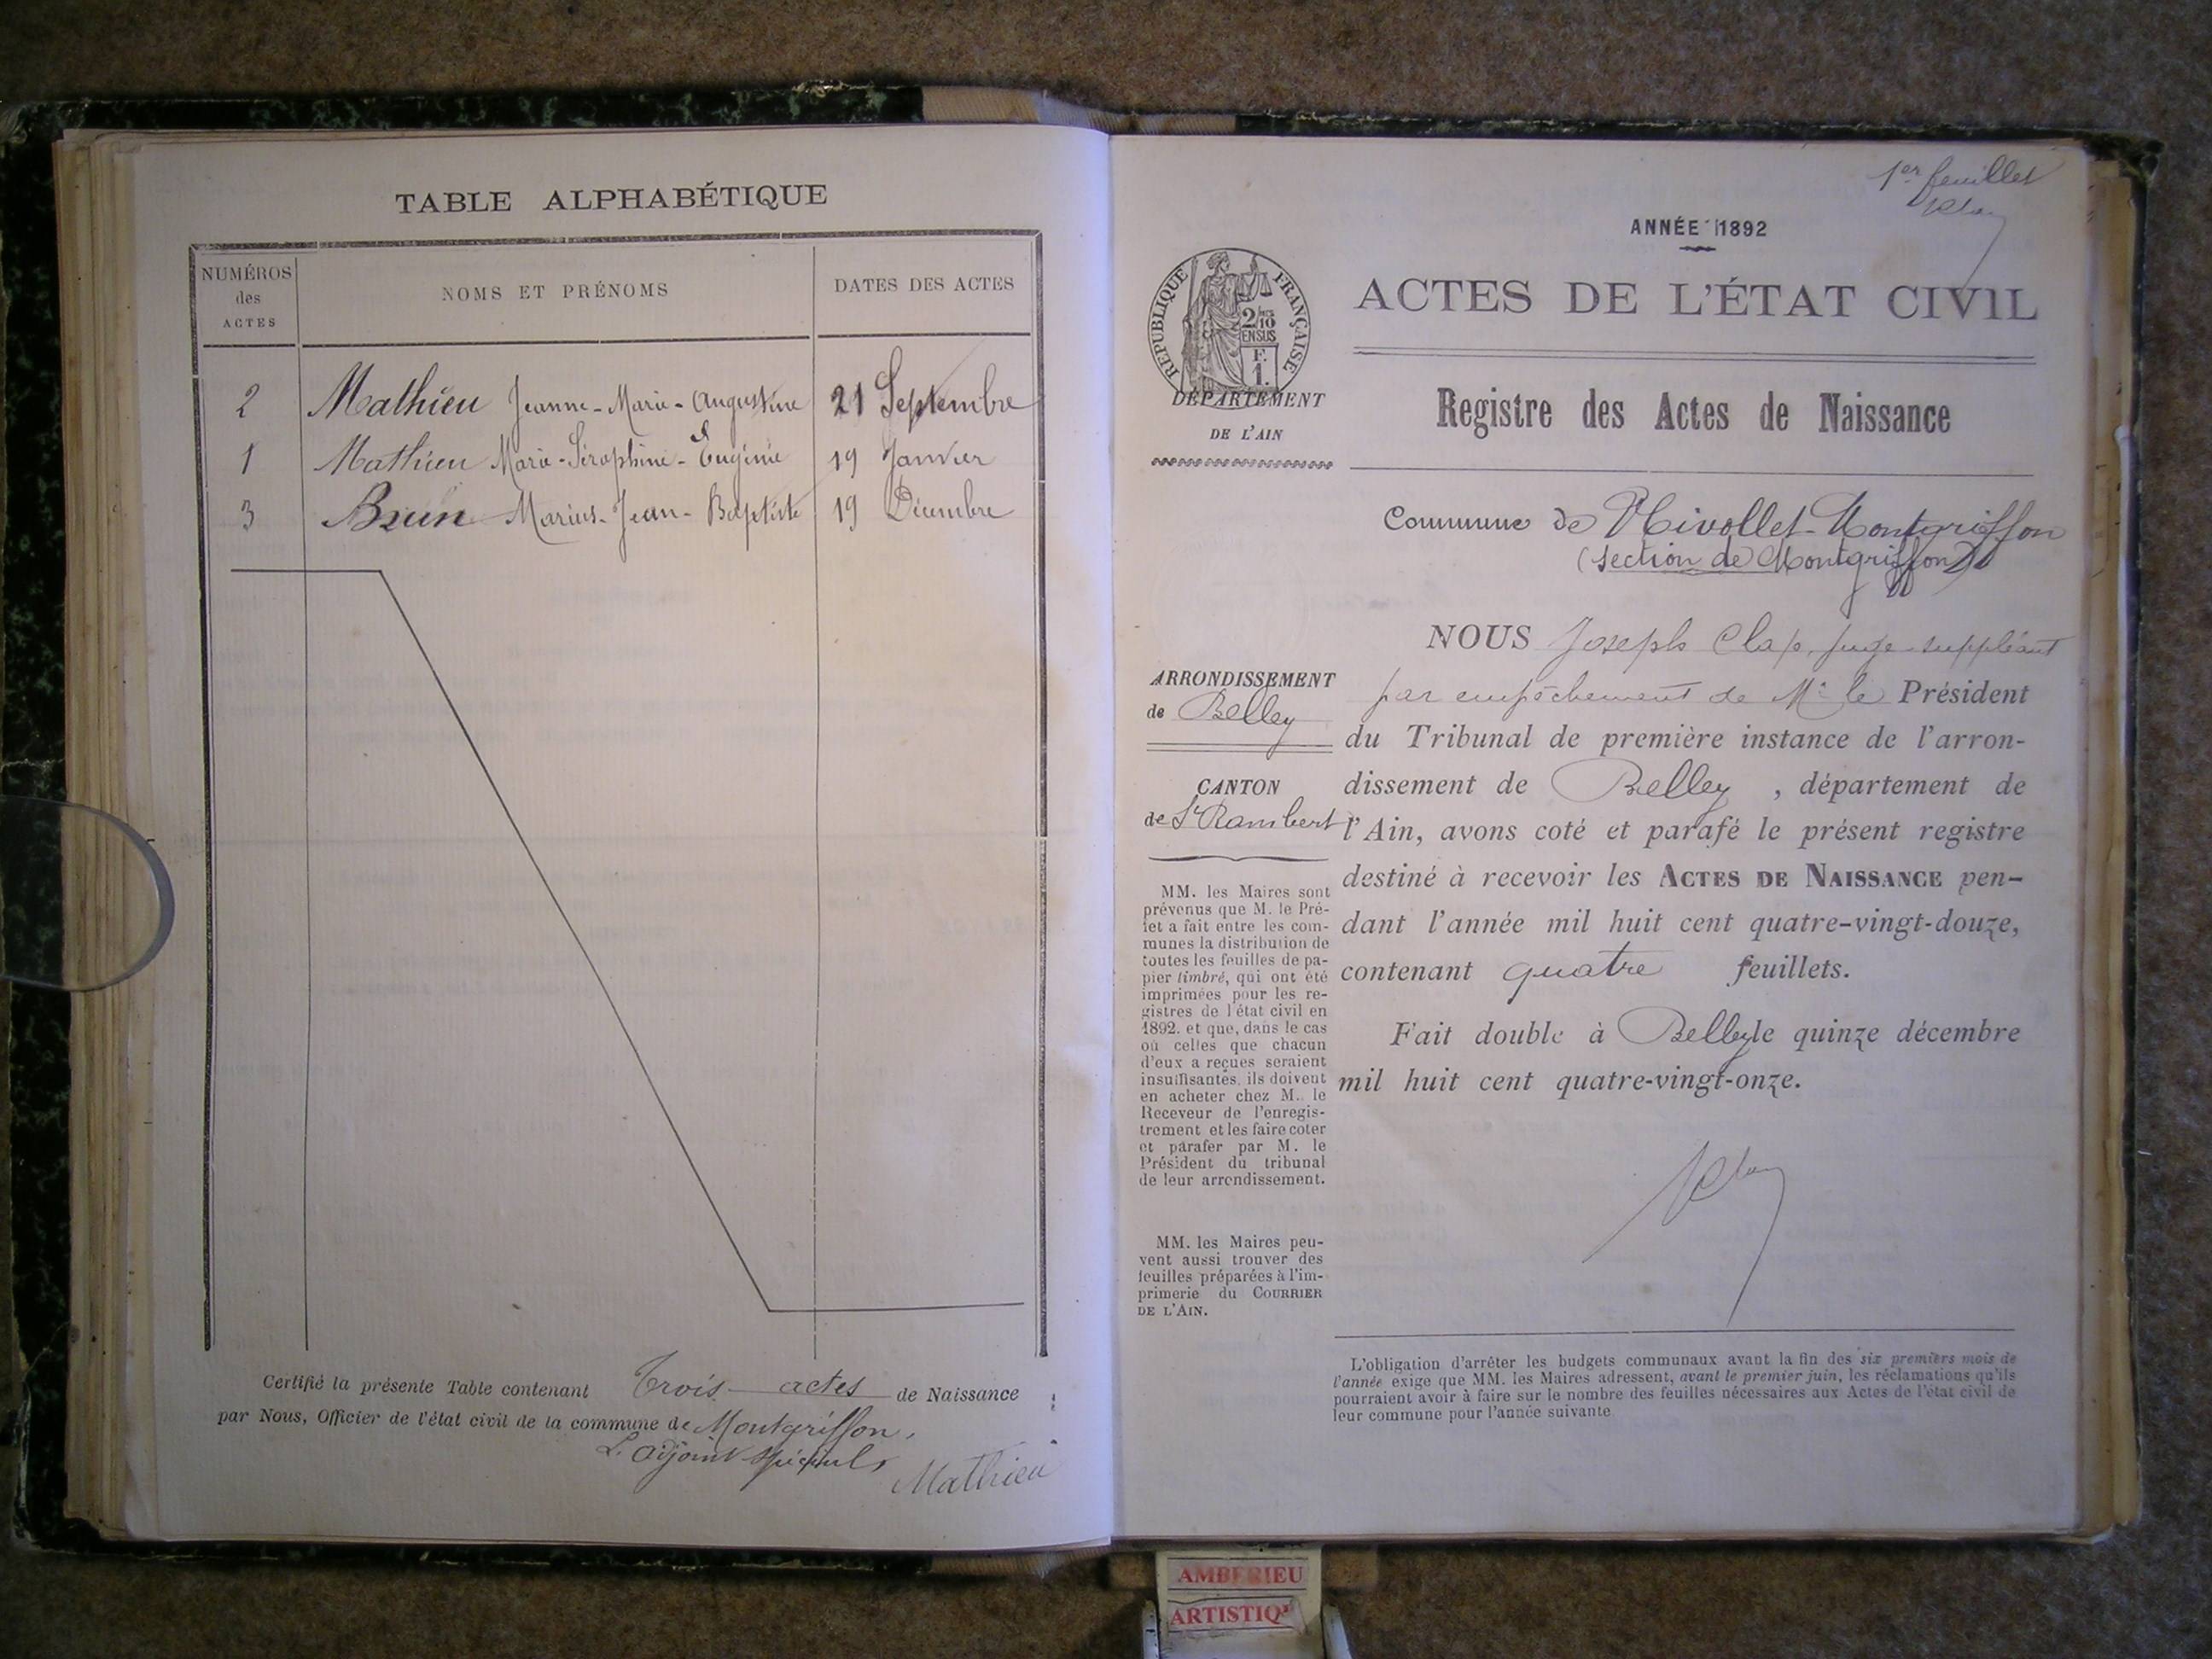 TABLE ALPHABÉTIQUE
NUMÉROS
des
ACTES
NOMS ET PRÉNOMS
DATES DES ACTES
2 Mathieu Jeanne-Marie-Augustine 21 Septembre
1 Mathieu Marie-Séraphine-Eugénie 19 Janvier
3 Brun Marius-Jean-Baptiste 19 Décembre
Certifié la présente Table contenant Trois actes de Naissance
par Nous, Officier de l'état civil de la commune de Montgriffon,
L'adjoint spécial,
Mathieu
1er feuillet
ANNÉE 1892
ACTES DE L'ÉTAT CIVIL
RÉPUBLIQUE FRANÇAISE
2/10
EN SUS
F.
1.
DÉPARTEMENT
DE L'AIN
Registre des Actes de Naissance
Commune de Nivollet-Montgriffon
(section de Montgriffon)
ARRONDISSEMENT
de Belley
CANTON
de St Rambert
MM. les Maires sont
prévenus que M. le Pré-
fet a fait entre les com-
munes la distribution de
toutes les feuilles de pa-
pier timbré, qui ont été
imprimées pour les re-
gistres de l'état civil en
1892. et que, dans le cas
où celles que chacun
d'eux a reçues seraient
insuffisantes, ils doivent
en acheter chez M. le
Receveur de l'enregis-
trement et les faire coter
et parafer par M. le
Président du tribunal
de leur arrondissement.
MM. les Maires peu-
vent aussi trouver des
feuilles préparées à l'im-
primerie du COURRIER
DE L'AIN.
NOUS Joseph Clap, juge suppléant
par empêchement de Mr le Président
du Tribunal de première instance de l'arron-
dissement de Belley, département de
l'Ain, avons coté et parafé le présent registre
destiné à recevoir les ACTES DE NAISSANCE pen-
dant l'année mil huit cent quatre-vingt-douze,
contenant quatre feuillets.
Fait double à Belley le quinze décembre
mil huit cent quatre-vingt-onze.
L'obligation d'arrêter les budgets communaux avant la fin des six premiers mois de
l'année exige que MM. les Maires adressent, avant le premier juin, les réclamations qu'ils
pourraient avoir à faire sur le nombre des feuilles nécessaires aux Actes de l'état civil de
leur commune pour l'année suivante
AMBERIEU
ARTISTIQ